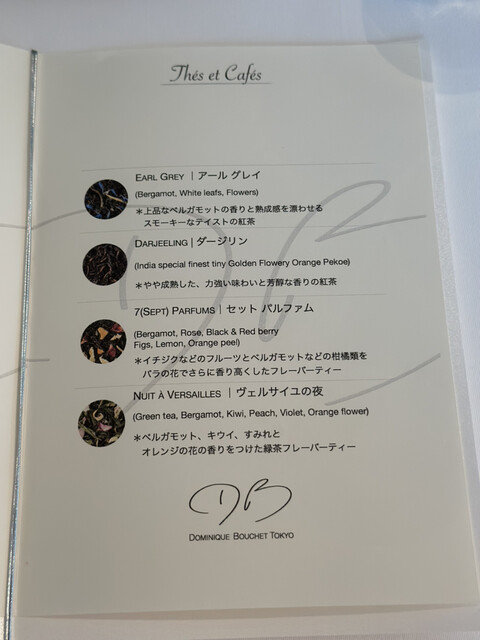 Thés et Cafés
EARL GREY | アール グレイ
(Bergamot, White leafs, Flowers)
＊上品なベルガモットの香りと熟成感を漂わせる
スモーキーなテイストの紅茶
DARJEELING | ダージリン
(India special finest tiny Golden Flowery Orange Pekoe)
＊やや成熟した、力強い味わいと芳醇な香りの紅茶
7(SEPT) PARFUMS | セット パルファム
(Bergamot, Rose, Black & Red berry
Figs, Lemon, Orange peel)
＊イチジクなどのフルーツとベルガモットなどの柑橘類を
バラの花でさらに香り高くしたフレーバーティー
NUIT À VERSAILLES | ヴェルサイユの夜
(Green tea, Bergamot, Kiwi, Peach, Violet, Orange flower)
＊ベルガモット、キウイ、すみれと
オレンジの花の香りをつけた緑茶フレーバーティー
DB
DOMINIQUE BOUCHET TOKYO